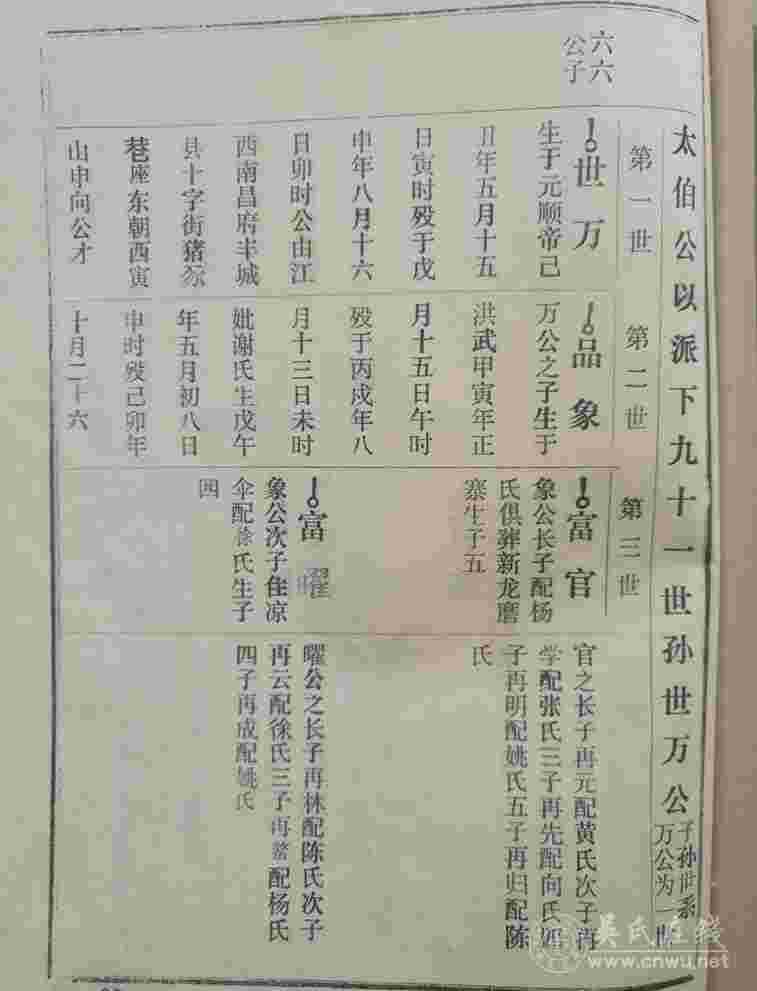 太伯公以派下九十一世孙世万公
子孙世系
万公为一世
六六
公子
第一世
世万
生于元顺帝己
丑年五月十五
日寅时殁于戊
申年八月十六
日卯时公由江
西南昌府丰城
县十字街猪
巷座东朝西寅
山申向公才
第二世
品象
万公之子生于
洪武甲寅年正
月十五日午时
殁于丙戍年八
月十三日未时
妣谢氏生戊午
年五月初八日
申时殁己卯年
十月二十六
第三世
富官
象公长子配杨
氏俱葬新龙磨
寨生子五
富曜
象公次子住凉
伞配徐氏生子
四
官之长子再元配黄氏次子再
学配张氏三子再先配向氏四
子再明配姚氏五子再归配陈
氏
曜公之长子再林配陈氏次子
再云配徐氏三子再 配杨氏
四子再成配姚氏
吴氏在线
www.cnwu.net